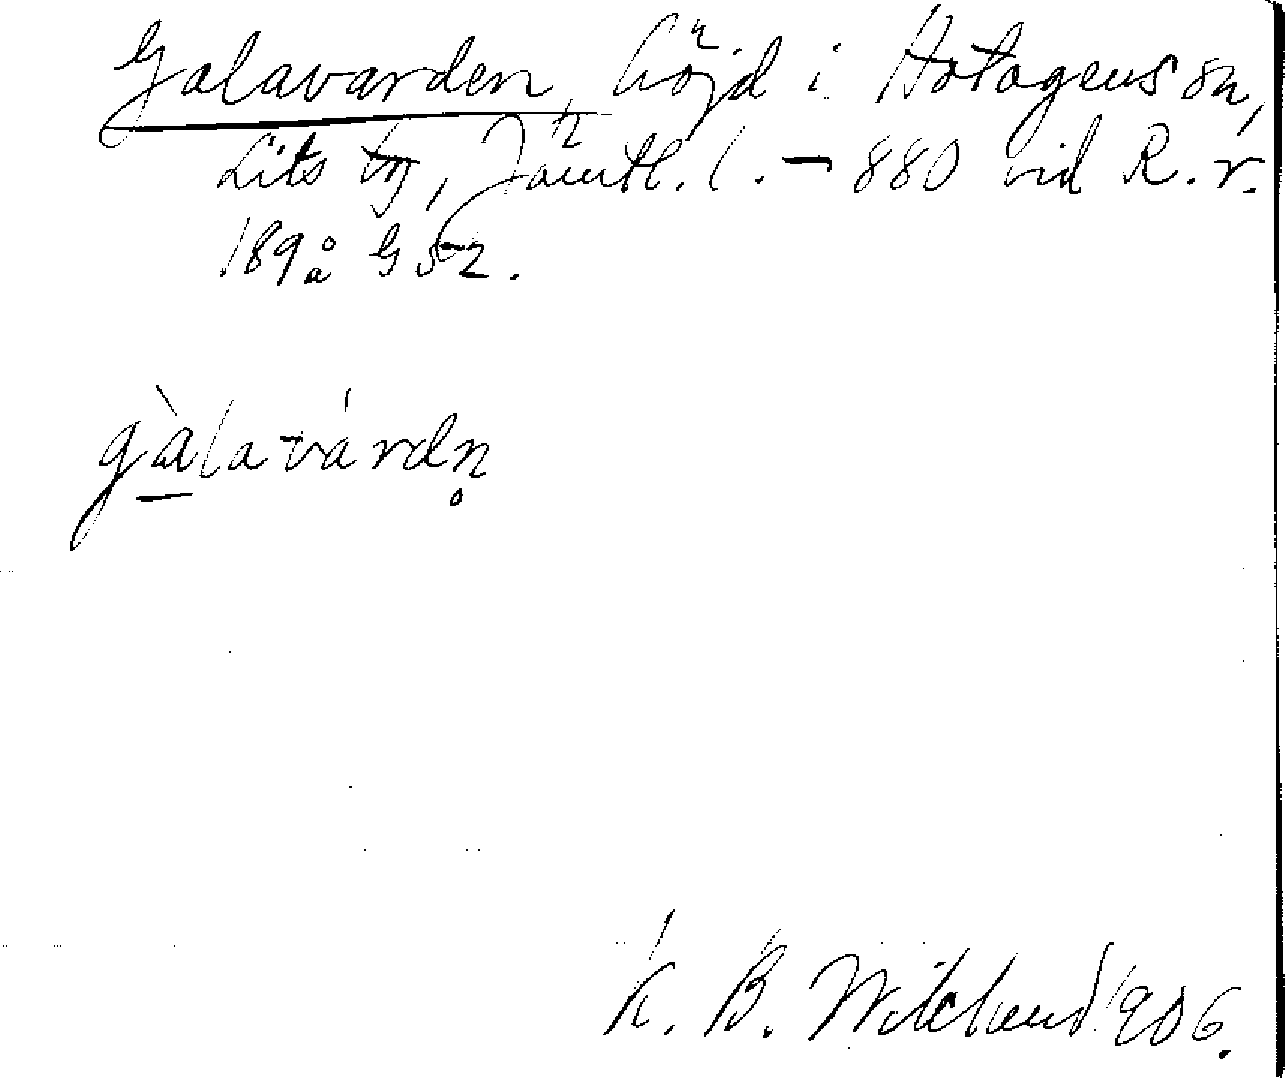 Galavarden, höjd i Hotagens sn,
Lits tg, Jämtl. l. – 880 vid R. r.
189 å G 52.
gàlavárdn̥
K. B. Wiklund 1906.